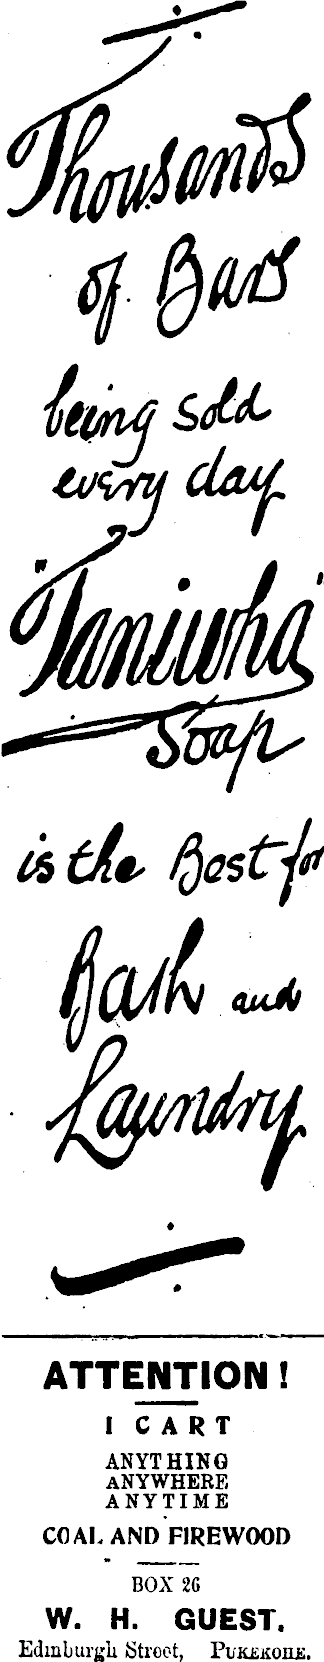 Thousands
of Bars
being sold
every day
"Taniwha"
Soap
is the Best for
Bath and
Laundry
ATTENTION!
I CART
ANYTHING
ANYWHERE
ANYTIME
COAL AND FIREWOOD
BOX 26
W. H. GUEST.
Edinburgh Street, PUKEKOHE.